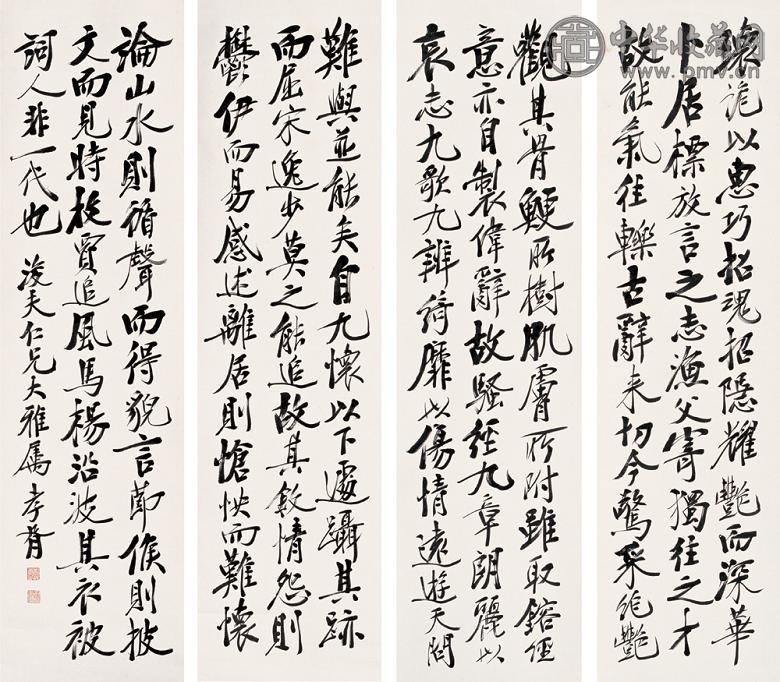 瓌詭以惠巧招魂招隱耀艷而深華
卜居標放言之志漁父寄獨往之才
故能氣往轢古辭来切今驚采絶艷
觀其骨鯁所樹肌膚所附雖取鎔經
意亦自製偉辭故騷經九章朗麗以
哀志九歌九辨綺靡以傷情遠遊天問
難與並能矣自九懷以下遽躡其跡
而屈宋逸步莫之能追故其敘情怨則
鬱伊而易感述離居則愴怏而難懷
論山水則循聲而得貌言節候則披
文而見時枚賈追風馬楊沿波其衣被
詞人非一代也 浚夫仁兄大雅屬 孝胥
中华收藏网
www.pmv.cn